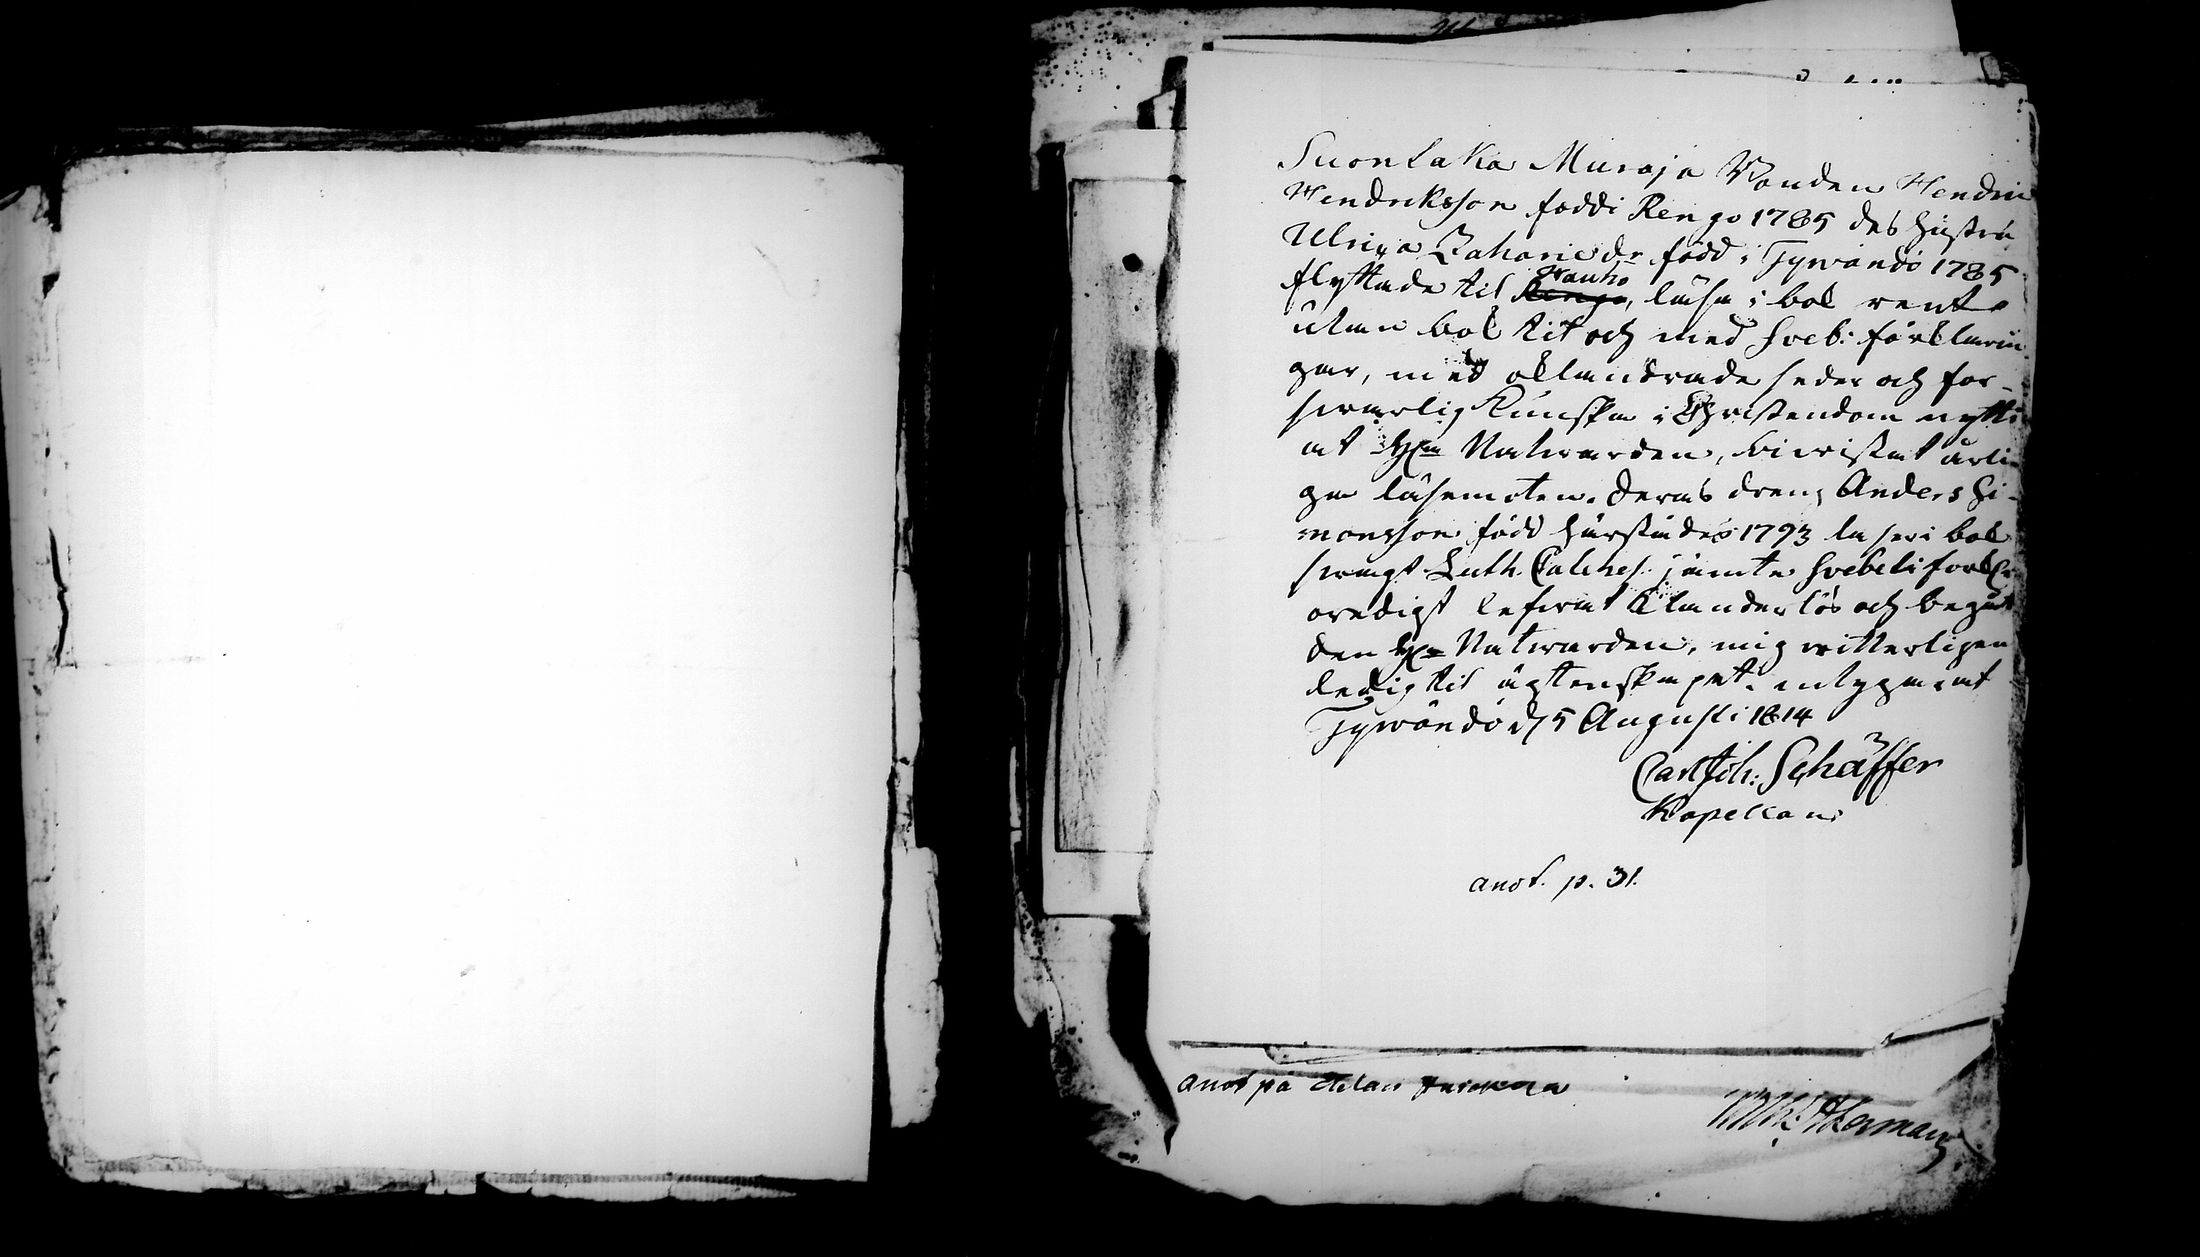 Suonlaka Muraja Bonden Hendric
Hendriksson född i Rengo 1785 des hustru
Ulriqa Zaharie dr född i Tyrvändö 1785
flyttade til Rengo, Wauho läsa i bok rent
utan bok tit och med Sveb: förklarin
gar, med oklandrade seder och for-
svarlig Kunskap i Christendom nytti
at H. Natvarden, biwistat årli-
ga läsemöten. deras dreng Anders Si-
monsson född härstädes 1793 läser i bok
svagt Luth. Catches. jämte Svebeli förkl
oredigt lefwat klanderlös och begådt
den H. Natwarden, mig witterligen
ledig til ägtenskapet. intygar at
Tyrvändö d 5 Augusti 1814
Carl Joh: Schäffer
Kapellan
anot. p. 31.
anot på
Akerman